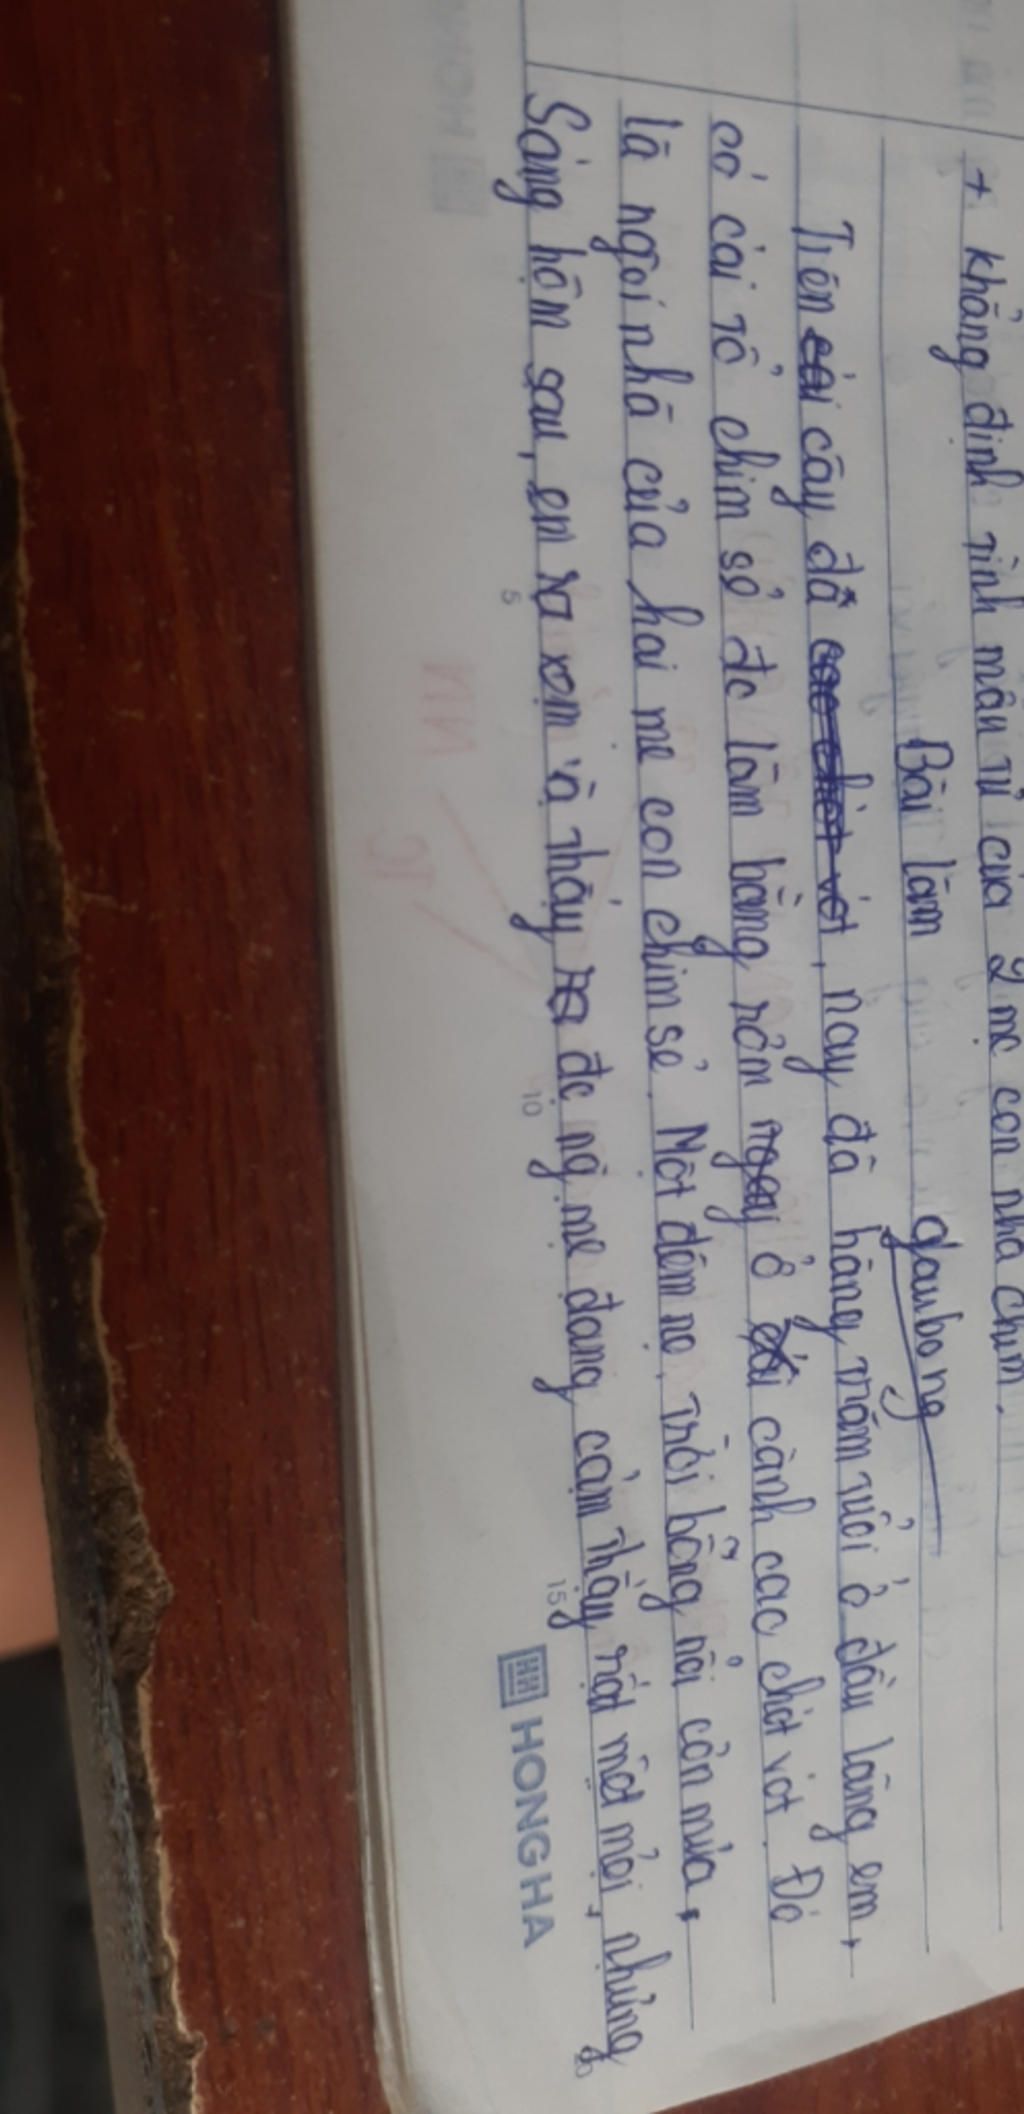 + khẳng định tình mẫu tử của 2 mẹ con nhà chim.
Bài làm
gaubong
Trên cái cây đã cao chót vót, nay đã hàng trăm tuổi ở đầu làng em,
có cái tổ chim sẻ đc làm bằng rơm ngay ở cái cành cao chót vót. Đó
là ngôi nhà của hai mẹ con chim sẻ. Một đêm nọ, trời bỗng nổi cơn mưa,
Sáng hôm sau, em ra xem và thấy đc mẹ đang cảm thấy rất mệt mỏi, nhưng
5
10
15
20
HONG HA